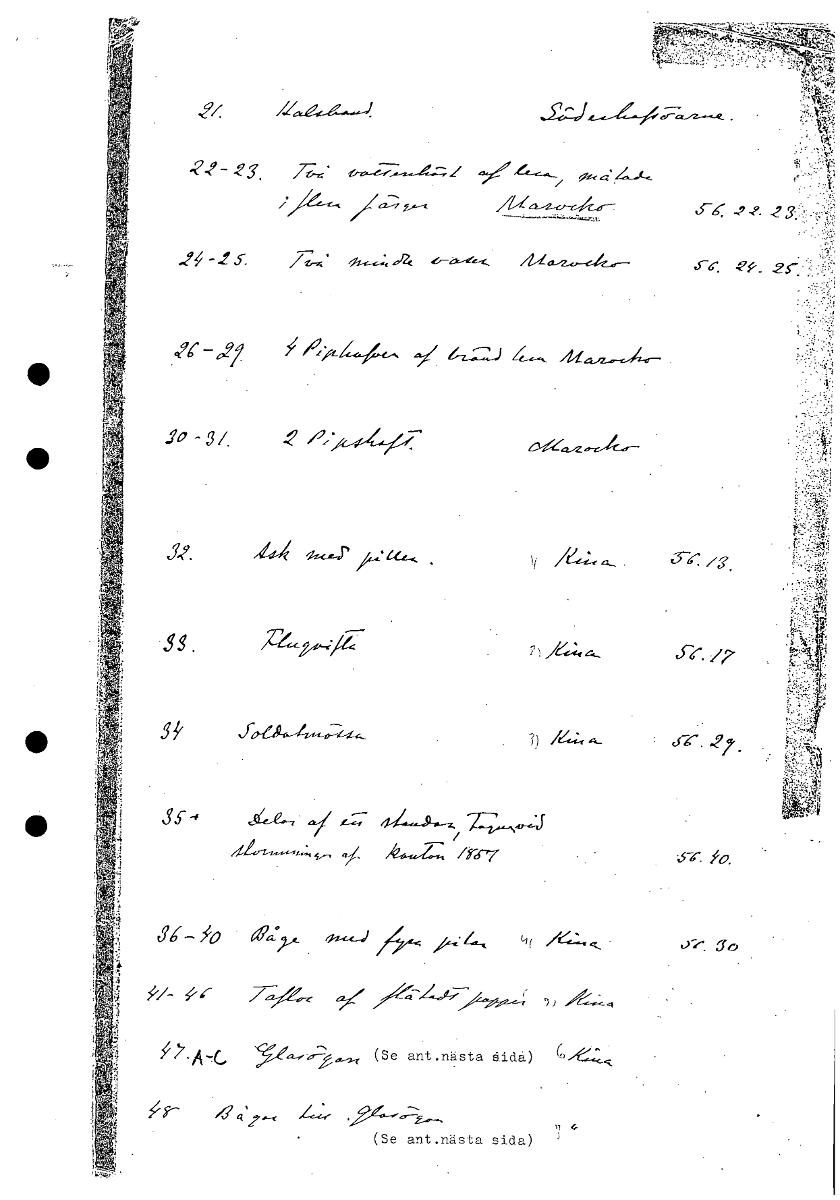 21. Halsband. Söderhafsöarne.
22-23. Två vattenkärl af lera, målade
i flera färger Marocko 56.22.23.
24-25. Två mindre vaser Marocko 56.24.25.
26-29. 4 Piphufven af bränd lera Marocko
30-31. 2 Pipskaft. Marocko
32. Ask med piller. Kina 56.13.
33. Flugvifta Kina 56.17
34 Soldatmössa Kina 56.29.
35 Delar af en standar, Tagen vid
stormningen af Kanton 1857 56.40.
36-40 Båge med fyra pilar Kina 56.30
41-46 Taflor af flätadt papper Kina
47.A-C Glasögon (Se ant.nästa sida) Kina
48 Bågar till Glasögon
(Se ant.nästa sida) "